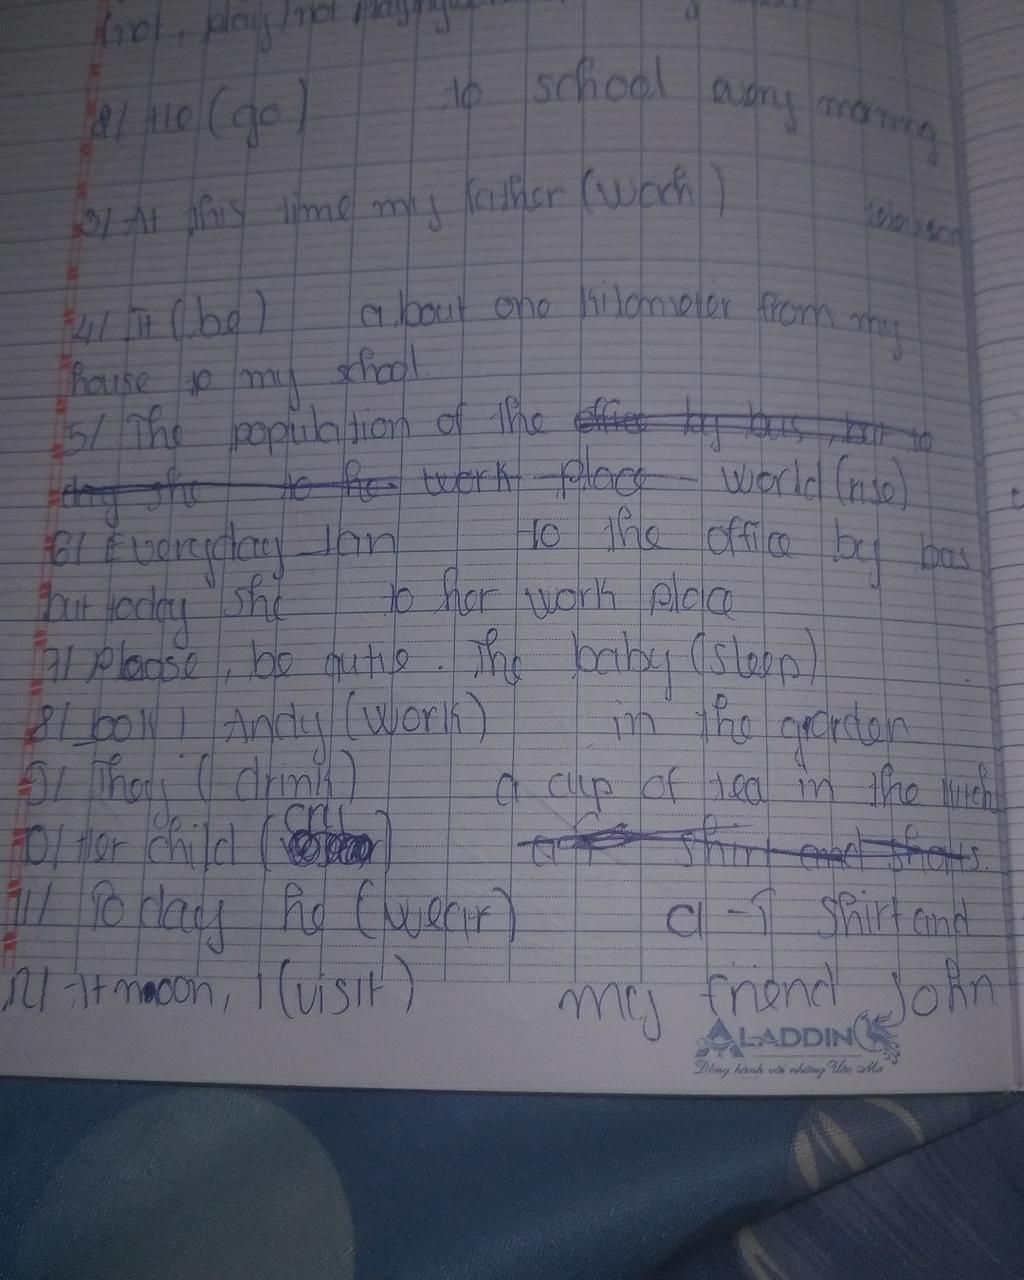 (not, play/not playing
2/ He (go) to school every morning
3/ At this time my father (work)
4/ It (be) about one kilometer from my
house to my school
5/ The population of the office by bus, but to
day she to he work place world (rise)
6/ Everyday Ian to the office by bus
but today she to her work place
7/ Please, be qutie. The baby (sleep)
8/ Andy (work) in the garden
9/ They (drink) a cup of tea in the kitch
10/ Her child (cry) shirt and shorts.
11/ To day he (wear) a -T shirt and
12/ At noon, I (visit) my friend John
ALADDIN
Đồng hành với những Ước Mơ